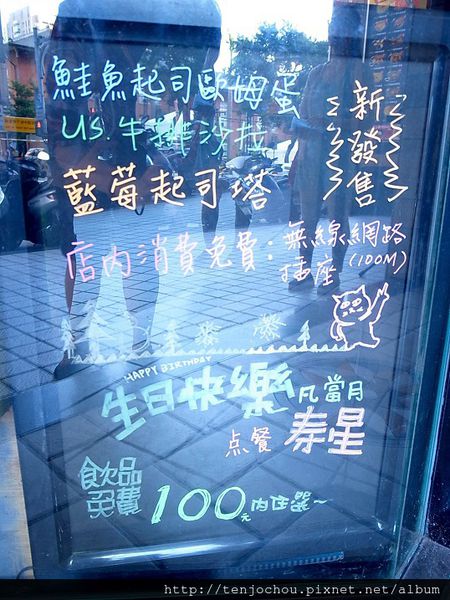 鮭魚起司歐姆蛋
US.牛排沙拉
藍莓起司塔
新發售
店內消費免費：無線網路
插座(100M)
HAPPY BIRTHDAY
生日快樂
凡當月
点餐 寿星
飲品
免費 100元內任選~
http://tenjochou.pixnet.net/album